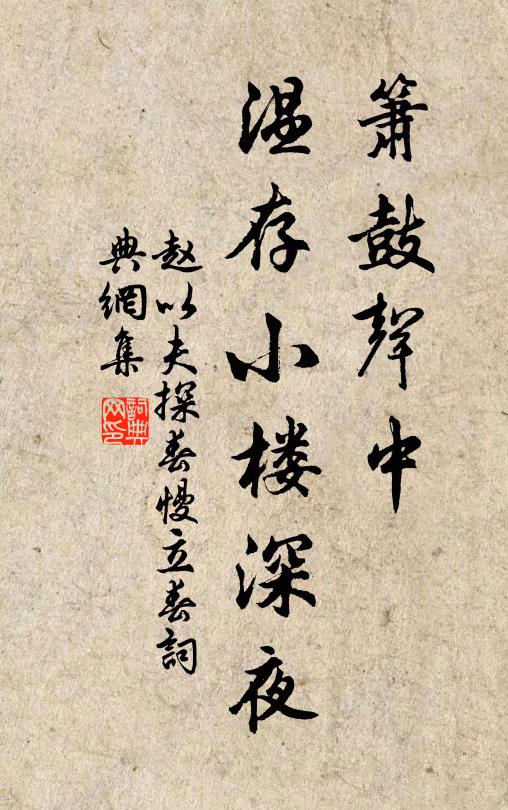 箫鼓聲中
温存小楼深夜
赵以夫探春慢立春詞
典網集
詞典
网印